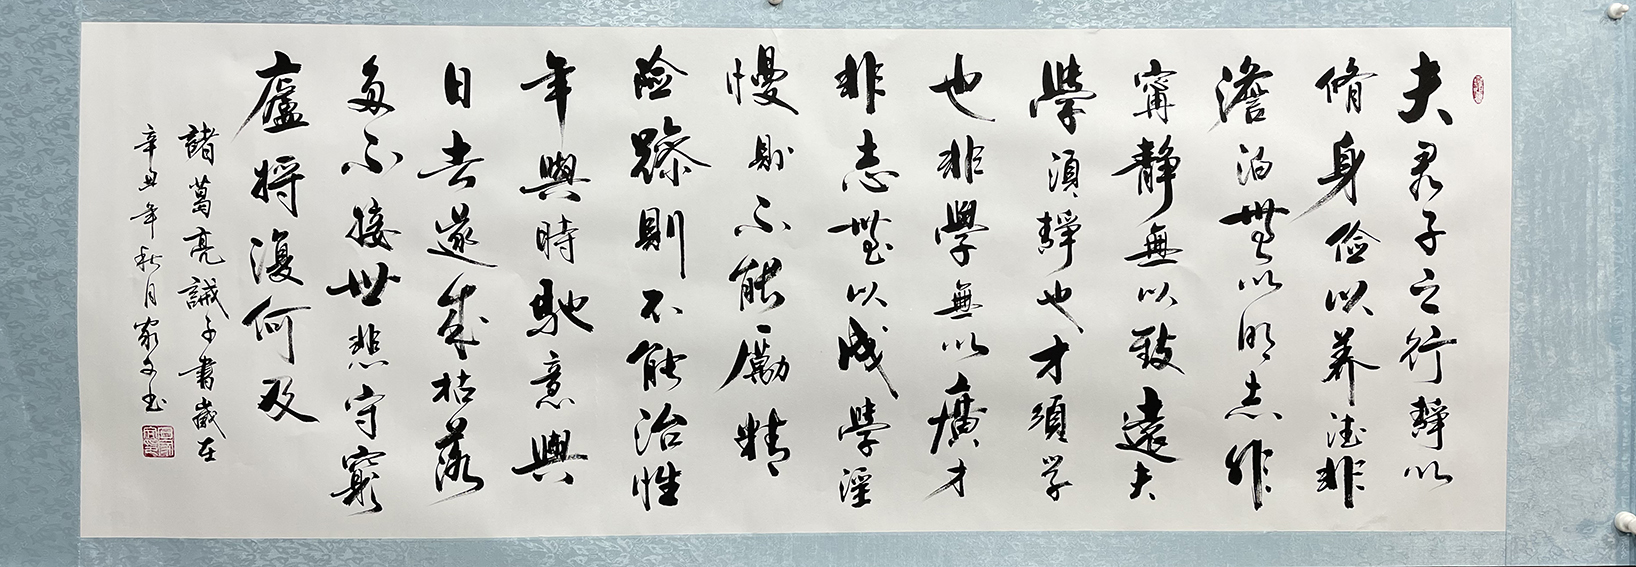 夫君子之行靜以
脩身儉以养德非
澹泊無以明志非
甯靜無以致遠夫
學須靜也才須学
也非學無以廣才
非志無以成學淫
慢則不能勵精
险躁則不能治性
年與時馳意與
日去遂成枯落
多不接世悲守窮
廬將復何及
諸葛亮誡子書歲在
辛丑年秋月家文玉